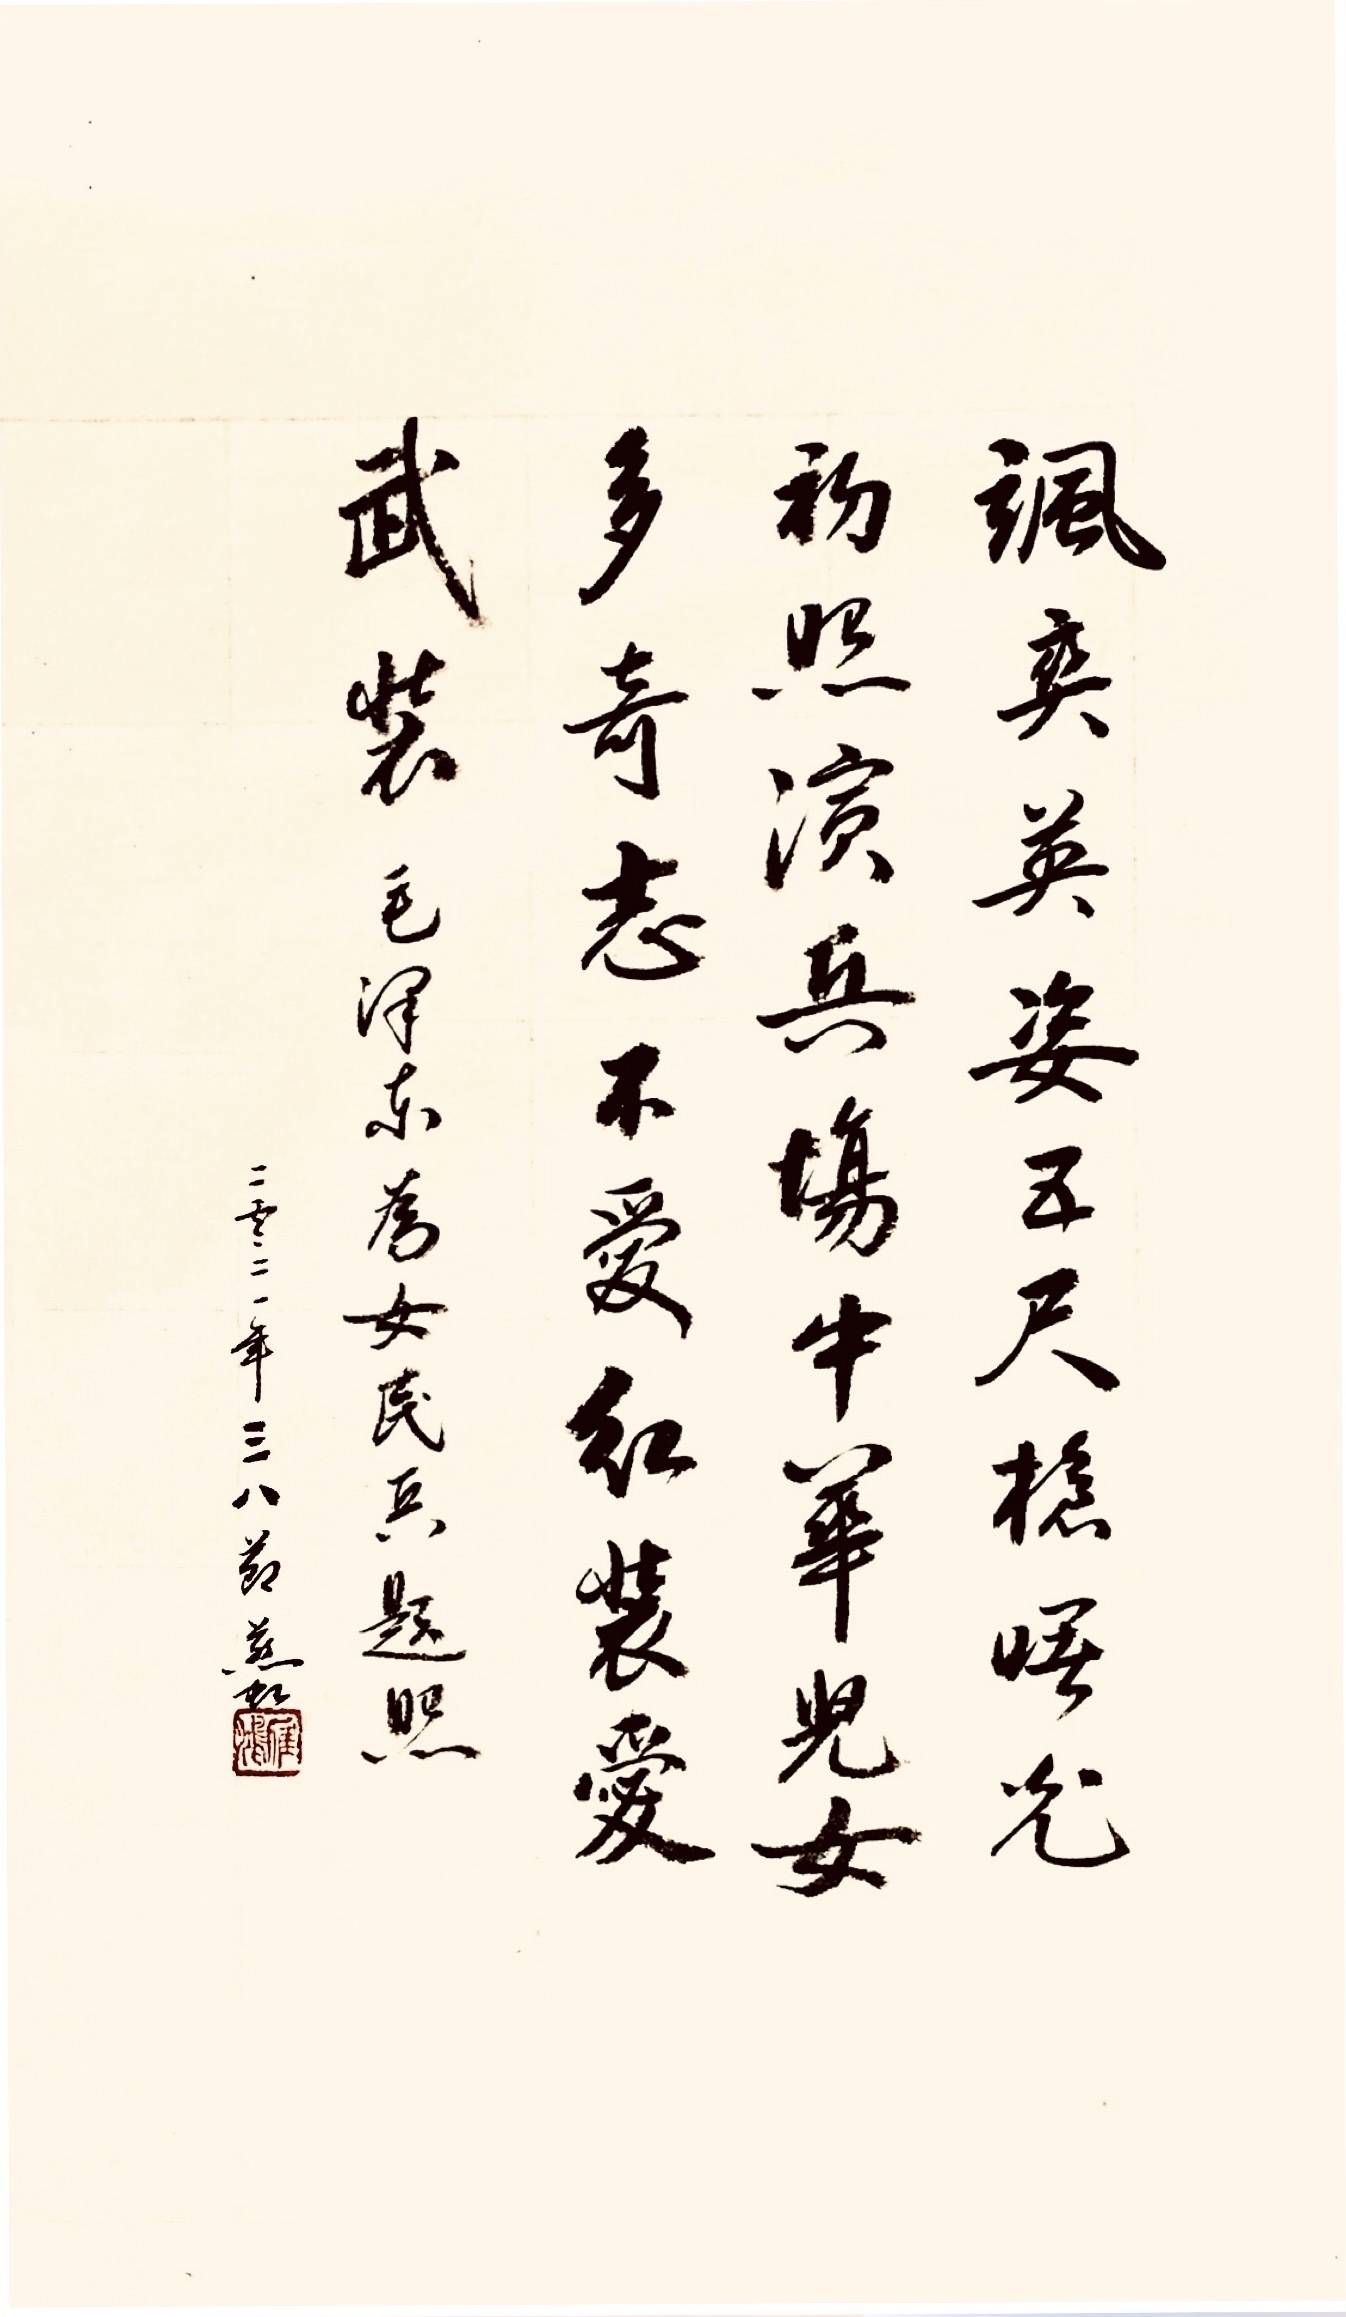 颯爽英姿五尺槍曙光
初照演兵場中華兒女
多奇志不愛红裝愛
武裝 毛泽东為女民兵題照
二零二一年三八節燕虹